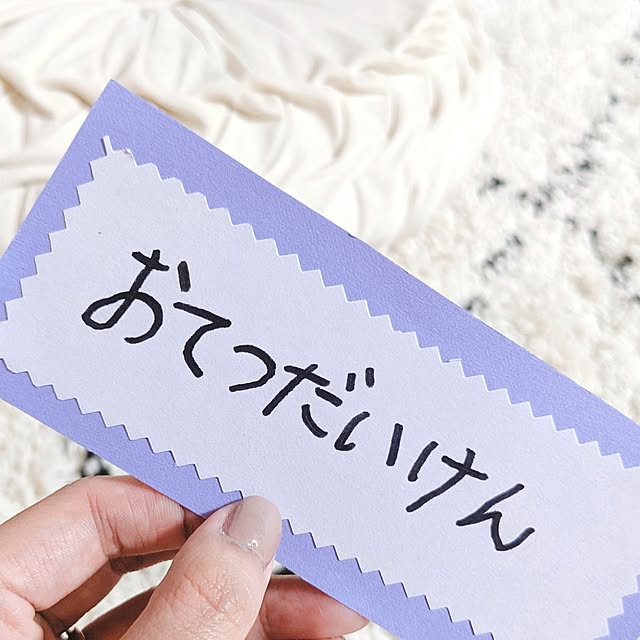 おてつだいけん